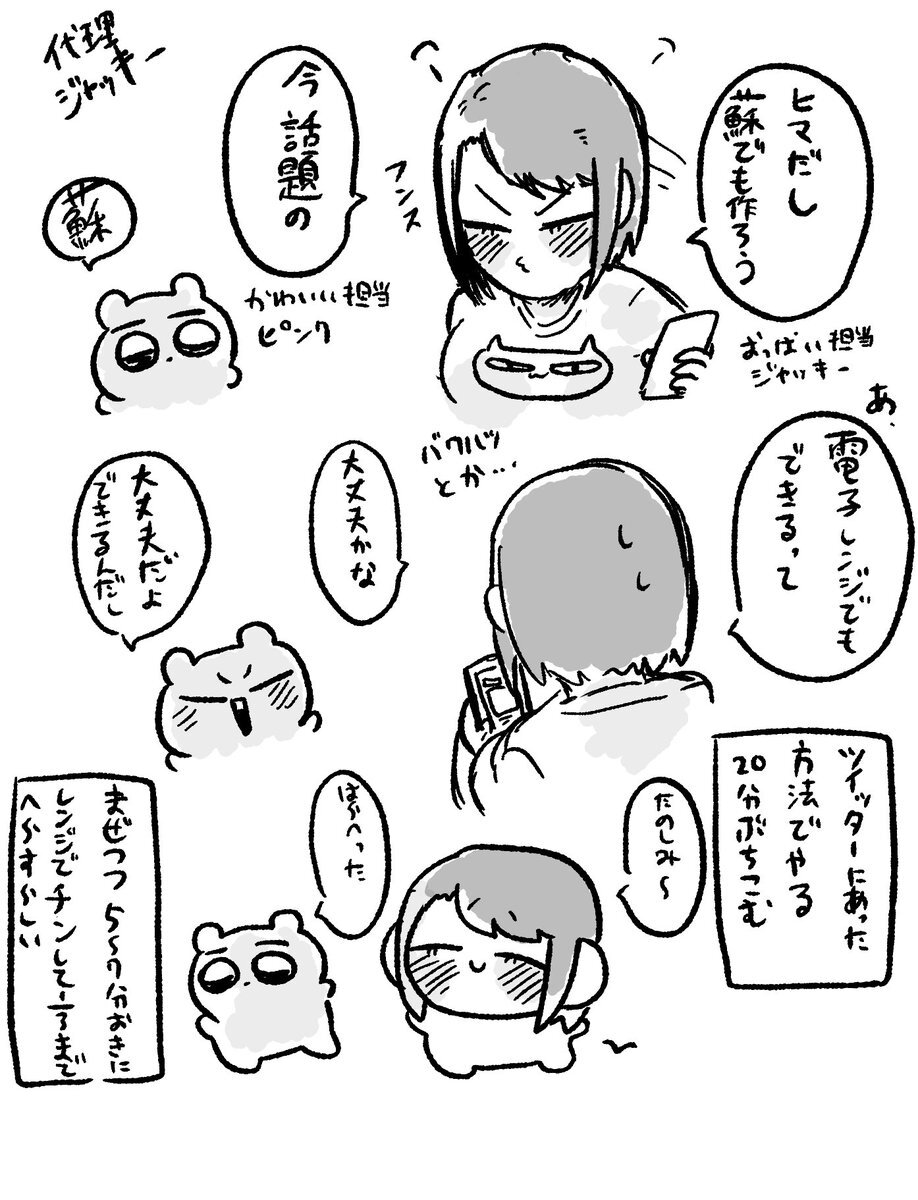 代理
ジャッキー
ヒマだし
蘇でも作ろう
おっぱい担当
ジャッキー
フンス
今話題の
かわいい担当
ピンク
蘇
あ、
電子レンジでも
できるって
バクハツ
とか…
大丈夫かな
大丈夫だよ
できるんだし
ツイッターにあった
方法でやる
20分ぶちこむ
たのしみ〜
は〜へった
まぜつつ5〜7分おきに
レンジでチンして